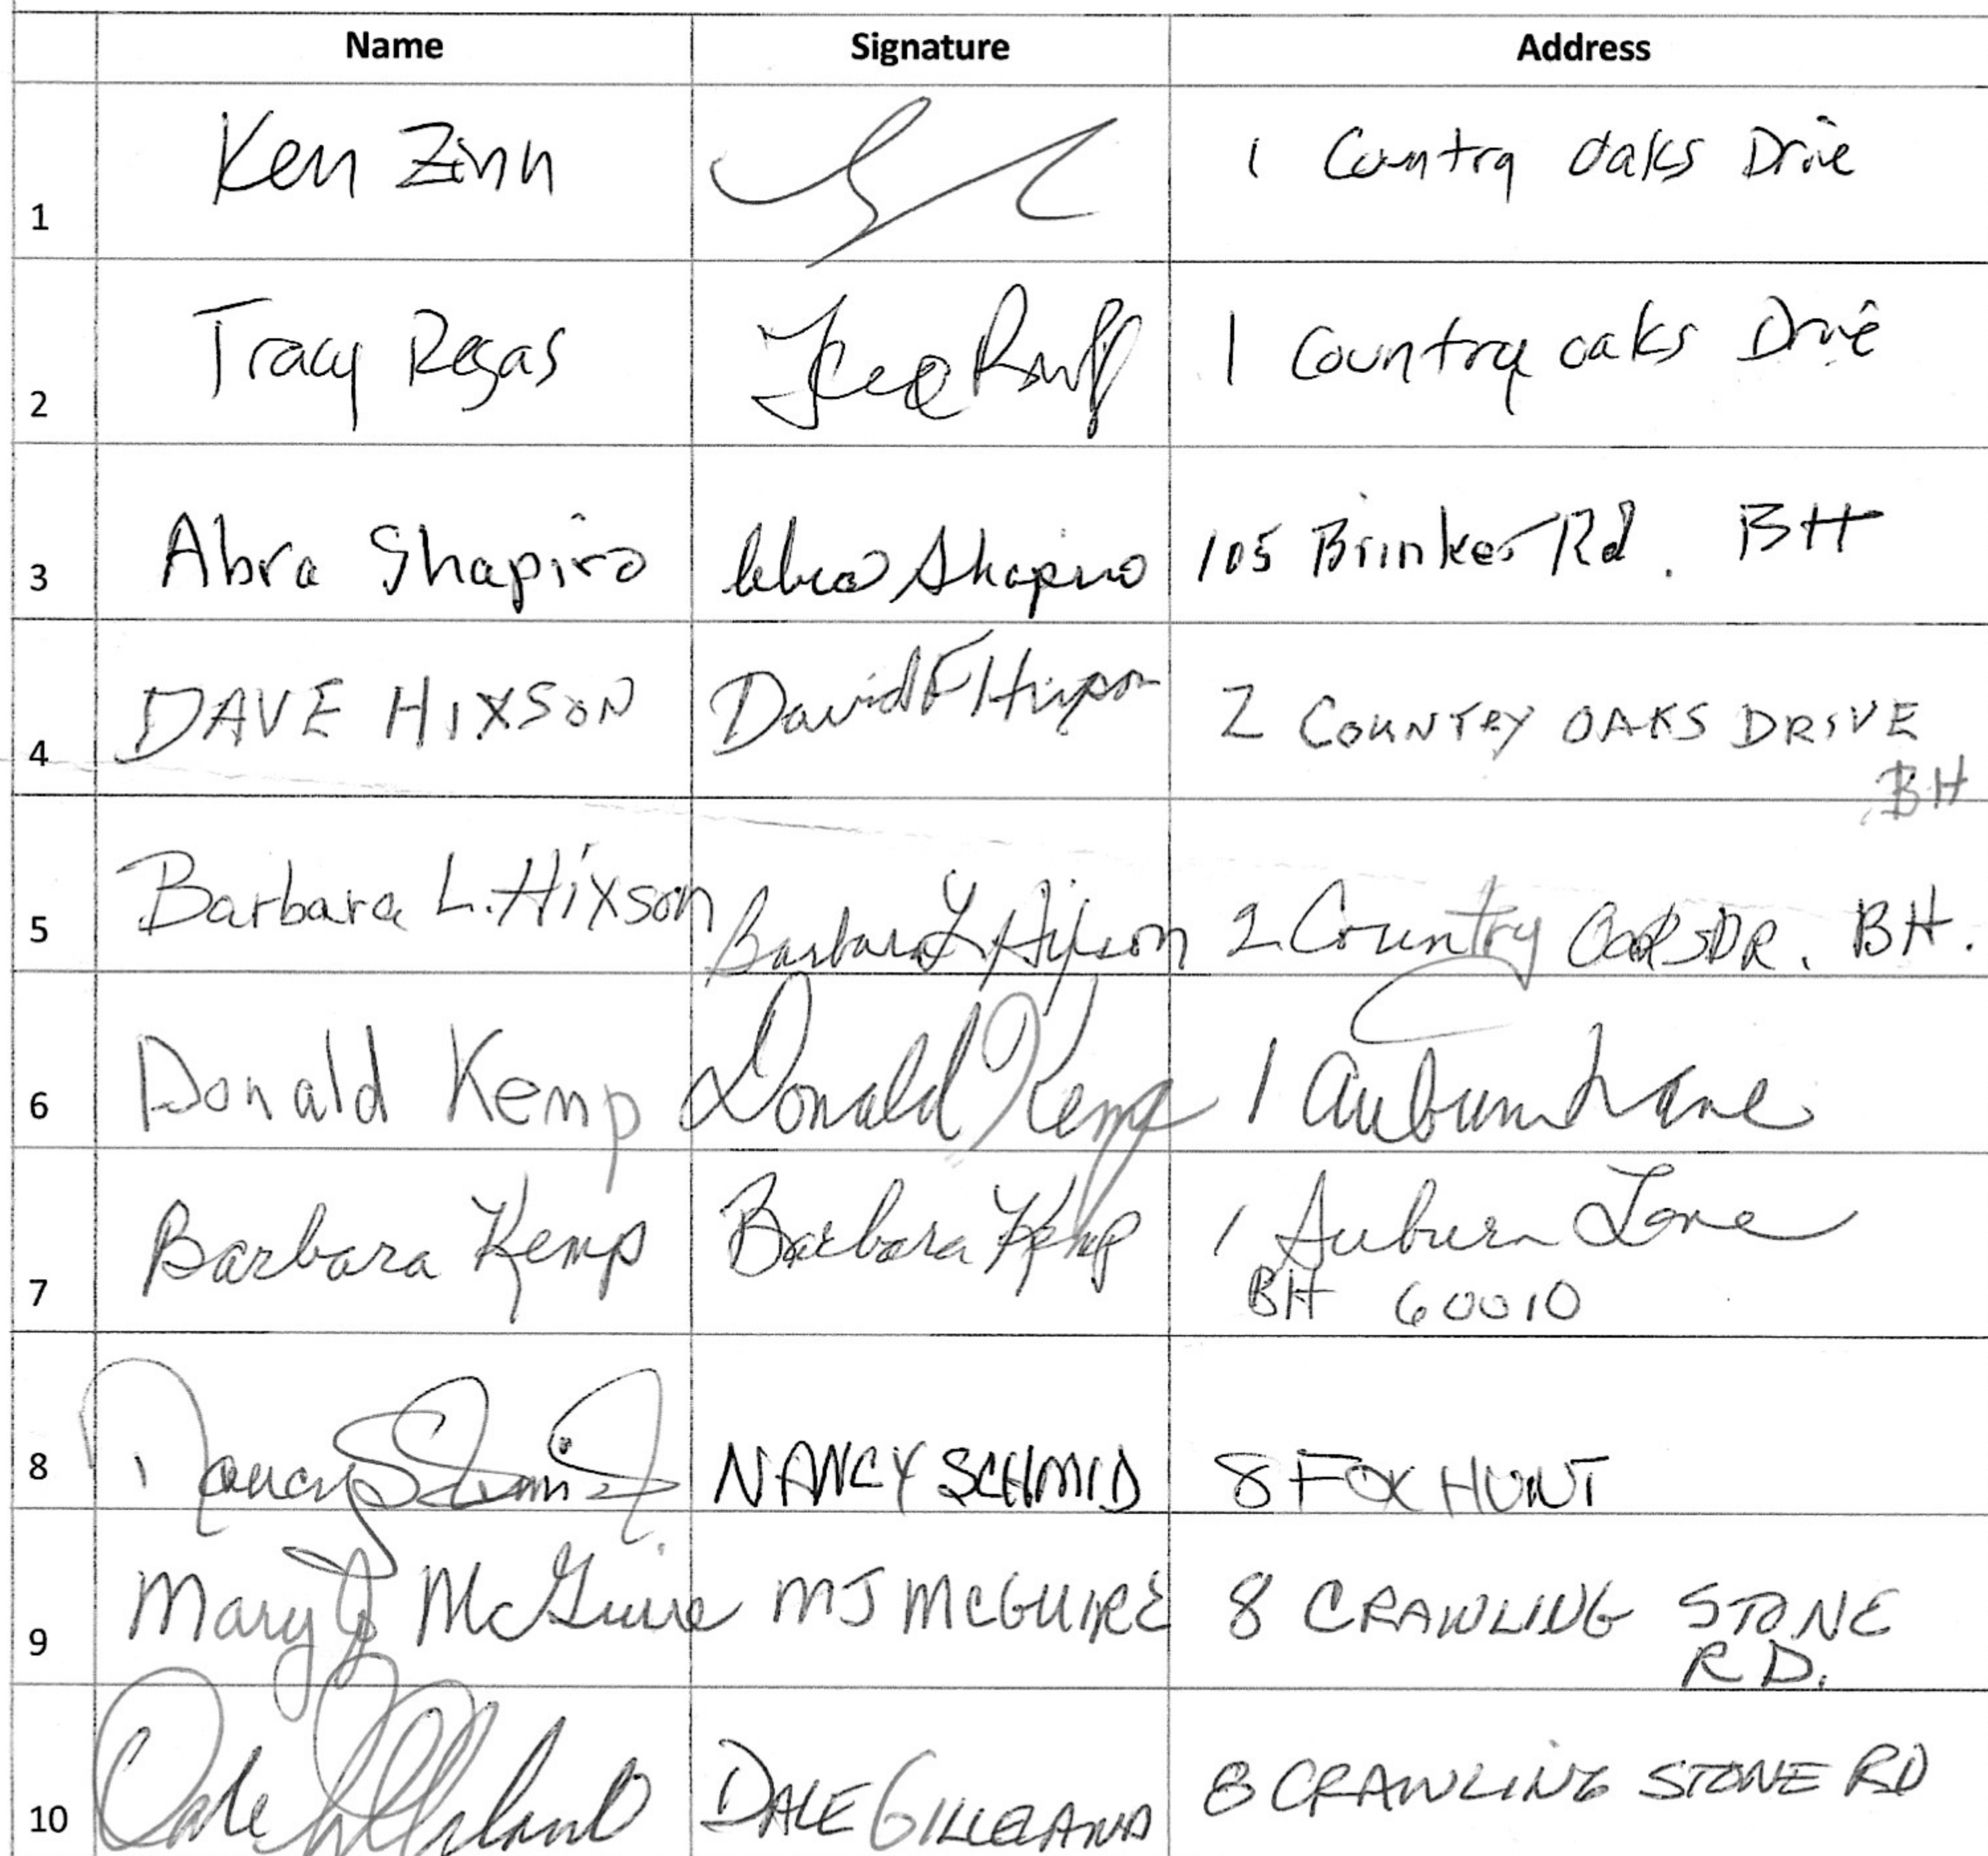 Name Signature Address
1 Ken Zinn 1 Country Oaks Drive
2 Tracy Regas 1 Country oaks Drive
3 Abra Shapiro Abra Shapiro 105 Brinker Rd. BH
4 DAVE HIXSON David F Hixson 2 COUNTRY OAKS DRIVE
BH
5 Barbara L. Hixson Barbara L Hixson 2 Country Oaks DR. BH.
6 Donald Kemp Donald Kemp 1 Auburn Lane
7 Barbara Kemp Barbara Kemp 1 Auburn Lane
BH 60010
8 Nancy Schmid NANCY SCHMID 8 FOX HUNT
9 Mary J McGuire MJ MCGUIRE 8 CRAWLING STONE
RD.
10 Dale DALE GILLELAND 8 CRAWLING STONE RD